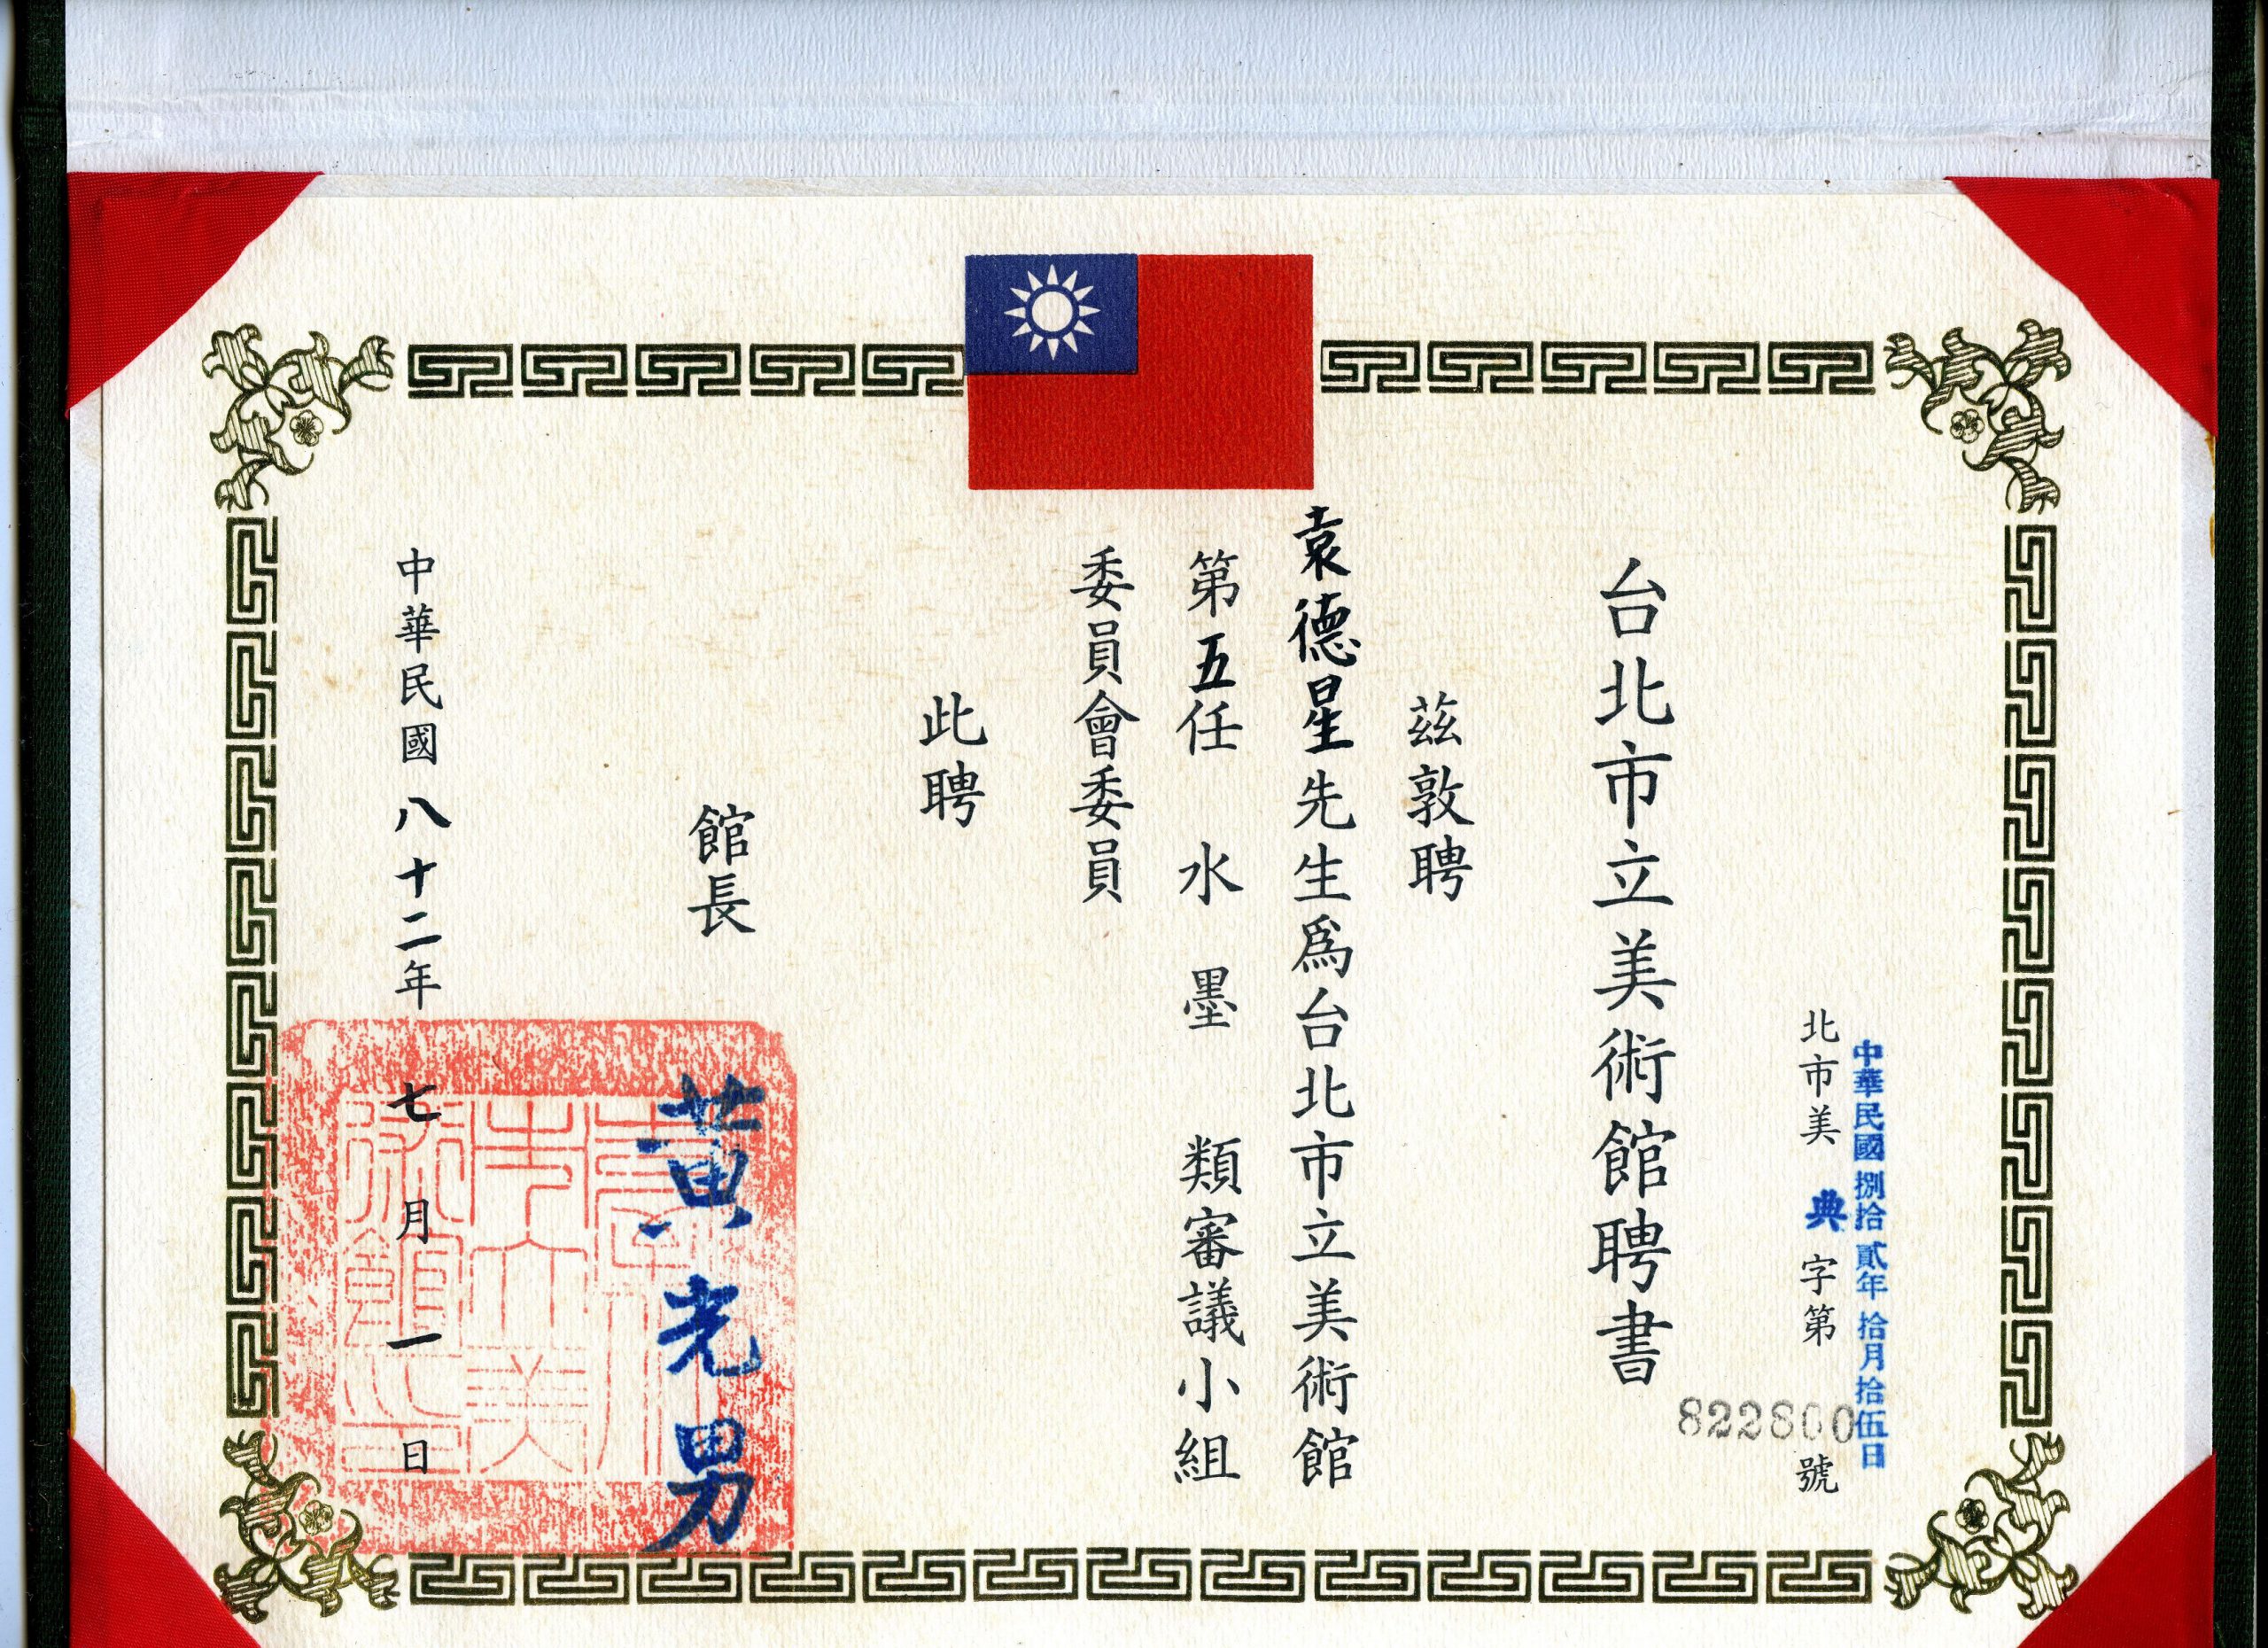 中華民國捌拾貳年拾月拾伍日
北市美典字第822800號
台北市立美術館聘書
茲敦聘
袁德星先生為台北市立美術館
第五任 水墨 類審議小組
委員會委員
此聘
館長 黃光男
中華民國八十二年七月一日